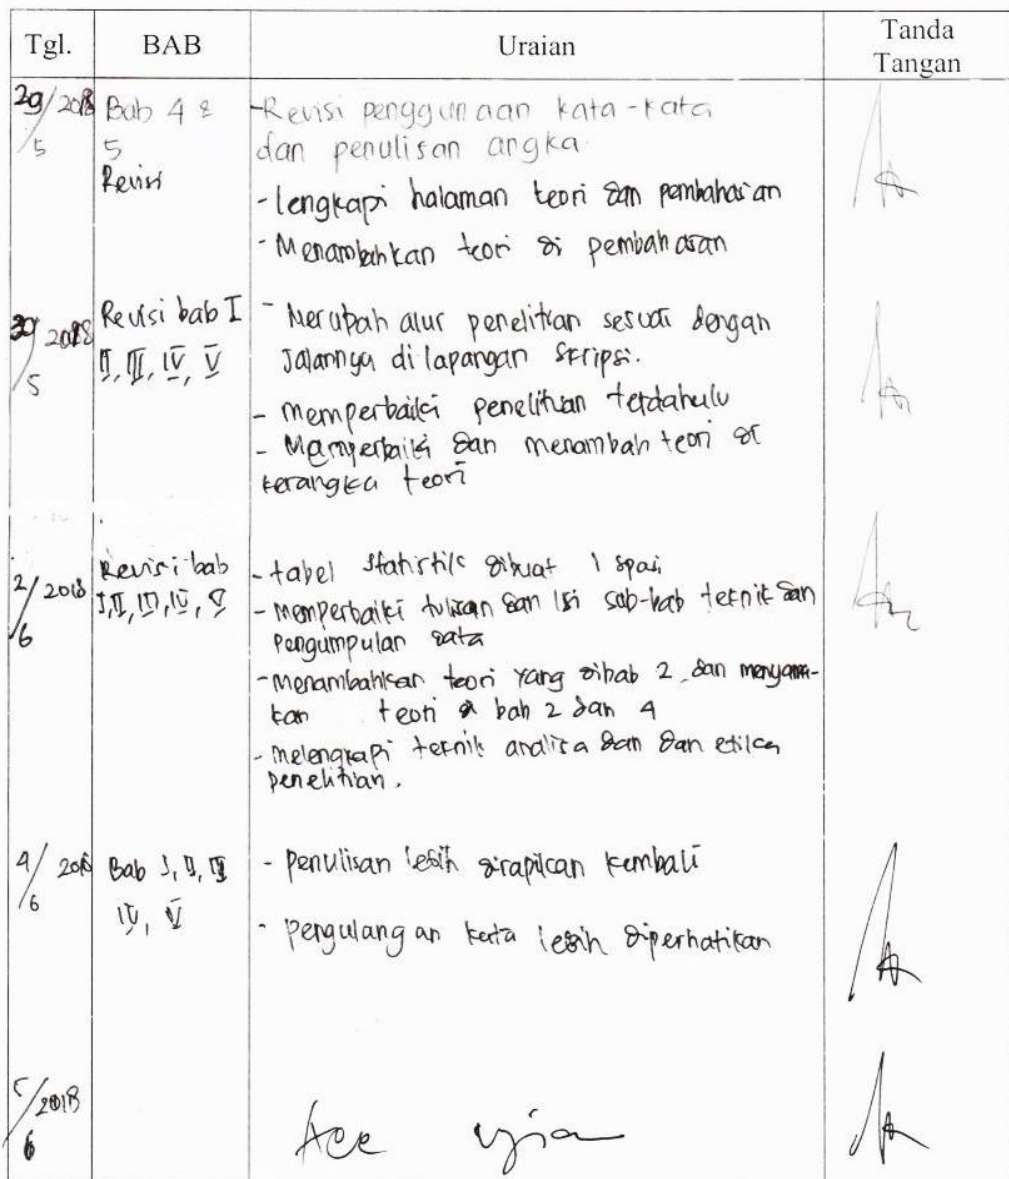 Tgl. BAB Uraian Tanda Tangan
29/5 2018 Bab 4 & 5 Revisi
-Revisi penggunaan kata-kata
dan penulisan angka.
- lengkapi halaman teori dan pembahasan
- Menambahkan teori di pembahasan
2018/5 Revisi bab I
II, III, IV, V
- Merubah alur penelitian sesuai dengan
Jalannya di lapangan skripsi.
- memperbaiki penelitian terdahulu
- Memperbaiki dan menambah teori di
kerangka teori
2/6 2018 Revisi bab
I, II, III, IV, V
- tabel statistik dibuat 1 spasi
- memperbaiki tulisan dan isi sub-bab teknik dan
pengumpulan data
- menambahkan teori yang dibab 2, dan menyama-
kan teori di bab 2 dan 4
- melengkapi teknik analisa dan dan etika
penelitian.
4/6 2018 Bab I, II, III
IV, V
- penulisan lebih dirapikan kembali
- pengulangan kata lebih diperhatikan
5/6 2018
Acc ujian